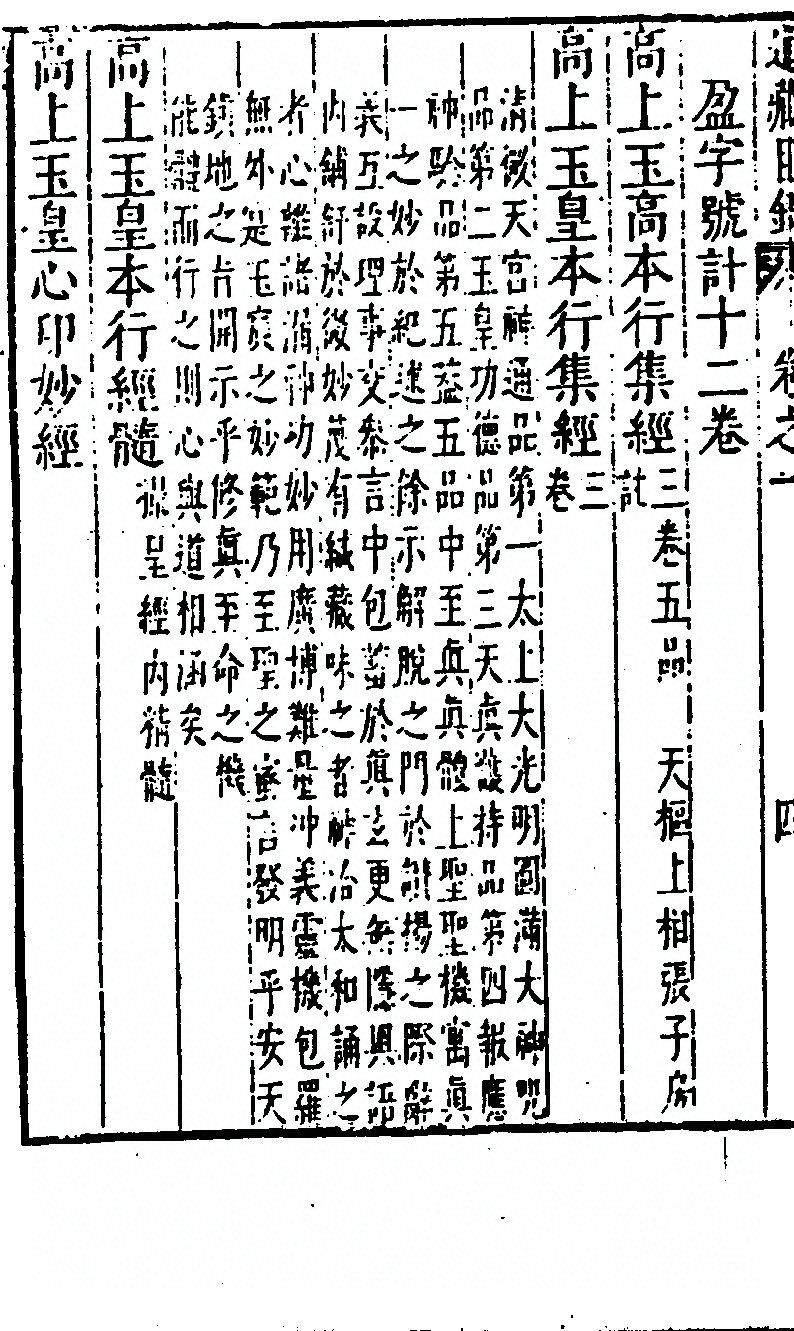 道藏目錄 卷之一 四
盈字號計十二卷
高上玉高本行集經三卷五品 天樞上相張子房
註
高上玉皇本行集經三
卷
清微天宮神通品第一太上大光明圓滿大神咒
品第二玉皇功德品第三天真護持品第四報應
神驗品第五蓋五品中至真真體上聖聖機寓真
一之妙於紀述之餘示解脫之門於讚揚之際辭
義互設理事交參言中包蓄於真玄更無隱與語
內鋪舒於微妙茂有緘藏味之者神冶太和誦之
者心離諸漏神功妙用廣博難量冲義靈機包羅
無外是玉宸之妙範乃至聖之密言發明乎安天
鎮地之旨開示乎修真至命之機
能體而行之則心與道相涵矣
高上玉皇本行經髓
呈經內精髓
高上玉皇心印妙經